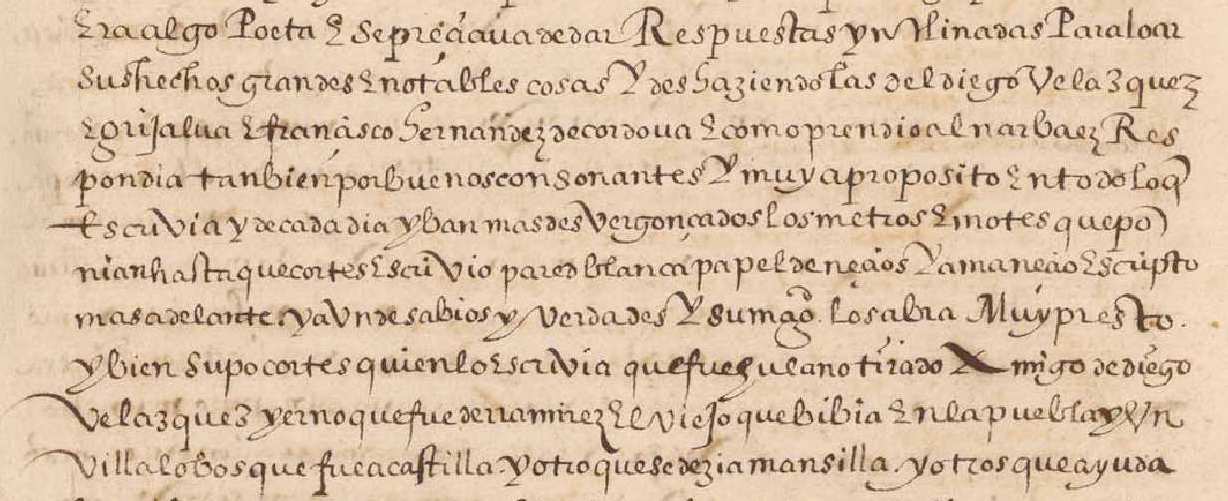 Era algo Poeta E se preçiava de dar Respuestas ynclinadas Para loar
sus hechos grandes E notables cosas Y deshaziendo las del diego Velazquez
E grijalva E françisco hernandez de cordova E como prendio al narbaez Res
pondia tanbien por buenos consonantes Y muy a proposito En todo loq
Escrivia y de cada dia yban mas desVergonçados los metros E motes que po
nian hasta que cortes Escrivio pared blanca papel de neçios Y amaneçio Escripto
mas adelante. y aVn de sabios y Verdades Y su magd. lo sabra Muy presto.
y bien supo cortes quien lo Escrivia que fue fulano tirado Amigo de diego
Velazquez yerno que fue de rramirez El viejo que bibia En la puebla y Un
Villalobos que fue a castilla. y otro que se dezia mansilla. y otros que ayuda